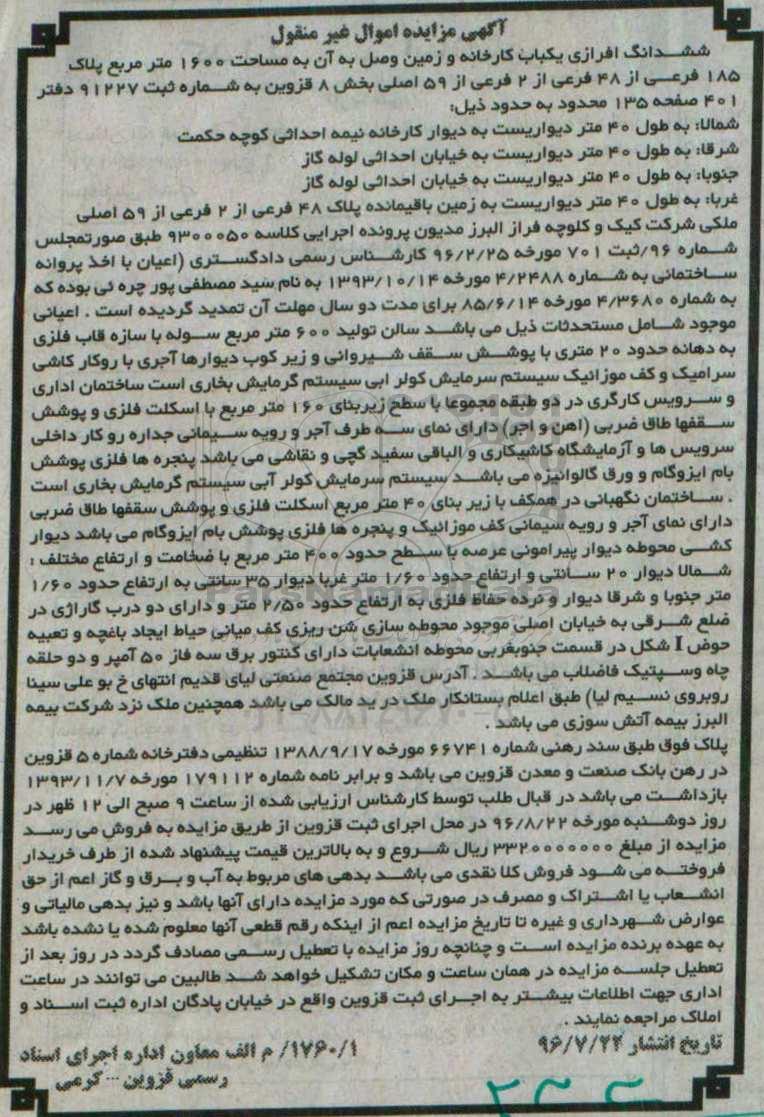 آگهی مزایده اموال غیر منقول
ششدانگ افرازی یکباب کارخانه و زمین وصل به آن به مساحت ۱۶۰۰ متر مربع پلاک
۱۸۵ فرعی از ۴۸ فرعی از ۲ فرعی از ۵۹ اصلی بخش ۸ قزوین به شماره ثبت ۹۱۲۲۷ دفتر
۴۰۱ صفحه ۱۳۵ محدود به حدود ذیل:
شمالا: به طول ۴۰ متر دیواریست به دیوار کارخانه نیمه احداثی کوچه حکمت
شرقا: به طول ۴۰ متر دیواریست به خیابان احداثی لوله گاز
جنوبا: به طول ۴۰ متر دیواریست به خیابان احداثی لوله گاز
غربا: به طول ۴۰ متر دیواریست به زمین باقیمانده پلاک ۴۸ فرعی از ۲ فرعی از ۵۹ اصلی
ملکی شرکت کیک و کلوچه فراز البرز مدیون پرونده اجرایی کلاسه ۹۳۰۰۰۵۰ طبق صورتمجلس
شماره ۹۶/ثبت ۷۰۱ مورخه ۹۶/۲/۲۵ کارشناس رسمی دادگستری (اعیان با اخذ پروانه
ساختمانی به شماره ۴/۲۴۸۸ مورخه ۱۳۹۳/۱۰/۱۴ به نام سید مصطفی پور چره ئی بوده که
به شماره ۴/۳۶۸۰ مورخه ۸۵/۶/۱۴ برای مدت دو سال مهلت آن تمدید گردیده است . اعیانی
موجود شامل مستحدثات ذیل می باشد سالن تولید ۶۰۰ متر مربع سوله با سازه قاب فلزی
به دهانه حدود ۲۰ متری با پوشش سقف شیروانی و زیر کوب دیوارها آجری با روکار کاشی
سرامیک و کف موزائیک سیستم سرمایش کولر ابی سیستم گرمایش بخاری است ساختمان اداری
و سرویس کارگری در دو طبقه مجموعا با سطح زیربنای ۱۶۰ متر مربع با اسکلت فلزی و پوشش
سقفها طاق ضربی (اهن و اجر) دارای نمای سه طرف آجر و رویه سیمانی جداره رو کار داخلی
سرویس ها و آزمایشگاه کاشیکاری و الباقی سفید گچی و نقاشی می باشد پنجره ها فلزی پوشش
بام ایزوگام و ورق گالوانیزه می باشد سیستم سرمایش کولر آبی سیستم گرمایش بخاری است
. ساختمان نگهبانی در همکف با زیر بنای ۴۰ متر مربع اسکلت فلزی و پوشش سقفها طاق ضربی
دارای نمای آجر و رویه سیمانی کف موزائیک و پنجره ها فلزی پوشش بام ایزوگام می باشد دیوار
کشی محوطه دیوار پیرامونی عرصه با سطح حدود ۴۰۰ متر مربع با ضخامت و ارتفاع مختلف :
شمالا دیوار ۲۰ سانتی و ارتفاع حدود ۱/۶۰ متر غربا دیوار ۳۵ سانتی به ارتفاع حدود ۱/۶۰
متر جنوبا و شرقا دیوار و نرده حفاظ فلزی به ارتفاع حدود ۲/۵۰ متر و دارای دو درب گاراژی در
ضلع شرقی به خیابان اصلی موجود محوطه سازی شن ریزی کف میانی حیاط ایجاد باغچه و تعبیه
حوض I شکل در قسمت جنوبغربی محوطه انشعابات دارای کنتور برق سه فاز ۵۰ آمپر و دو حلقه
چاه وسپتیک فاضلاب می باشد . آدرس قزوین مجتمع صنعتی لیای قدیم انتهای خ بو علی سینا
روبروی نسیم لیا) طبق اعلام بستانکار ملک در ید مالک می باشد همچنین ملک نزد شرکت بیمه
البرز بیمه آتش سوزی می باشد .
پلاک فوق طبق سند رهنی شماره ۶۶۷۴۱ مورخه ۱۳۸۸/۹/۱۷ تنظیمی دفترخانه شماره ۵ قزوین
در رهن بانک صنعت و معدن قزوین می باشد و برابر نامه شماره ۱۷۹۱۱۲ مورخه ۱۳۹۳/۱۱/۷
بازداشت می باشد در قبال طلب توسط کارشناس ارزیابی شده از ساعت ۹ صبح الی ۱۲ ظهر در
روز دوشنبه مورخه ۹۶/۸/۲۲ در محل اجرای ثبت قزوین از طریق مزایده به فروش می رسد
مزایده از مبلغ ۳۳۲۰۰۰۰۰۰۰ ریال شروع و به بالاترین قیمت پیشنهاد شده از طرف خریدار
فروخته می شود فروش کلا نقدی می باشد بدهی های مربوط به آب و برق و گاز اعم از حق
انشعاب یا اشتراک و مصرف در صورتی که مورد مزایده دارای آنها باشد و نیز بدهی مالیاتی و
عوارض شهرداری و غیره تا تاریخ مزایده اعم از اینکه رقم قطعی آنها معلوم شده یا نشده باشد
به عهده برنده مزایده است و چنانچه روز مزایده با تعطیل رسمی مصادف گردد در روز بعد از
تعطیل جلسه مزایده در همان ساعت و مکان تشکیل خواهد شد طالبین می توانند در ساعت
اداری جهت اطلاعات بیشتر به اجرای ثبت قزوین واقع در خیابان پادگان اداره ثبت اسناد و
املاک مراجعه نمایند .
تاریخ انتشار ۹۶/۷/۲۴
۱۷۶۰/۱/ م الف معاون اداره اجرای اسناد
رسمی قزوین ... کرمی